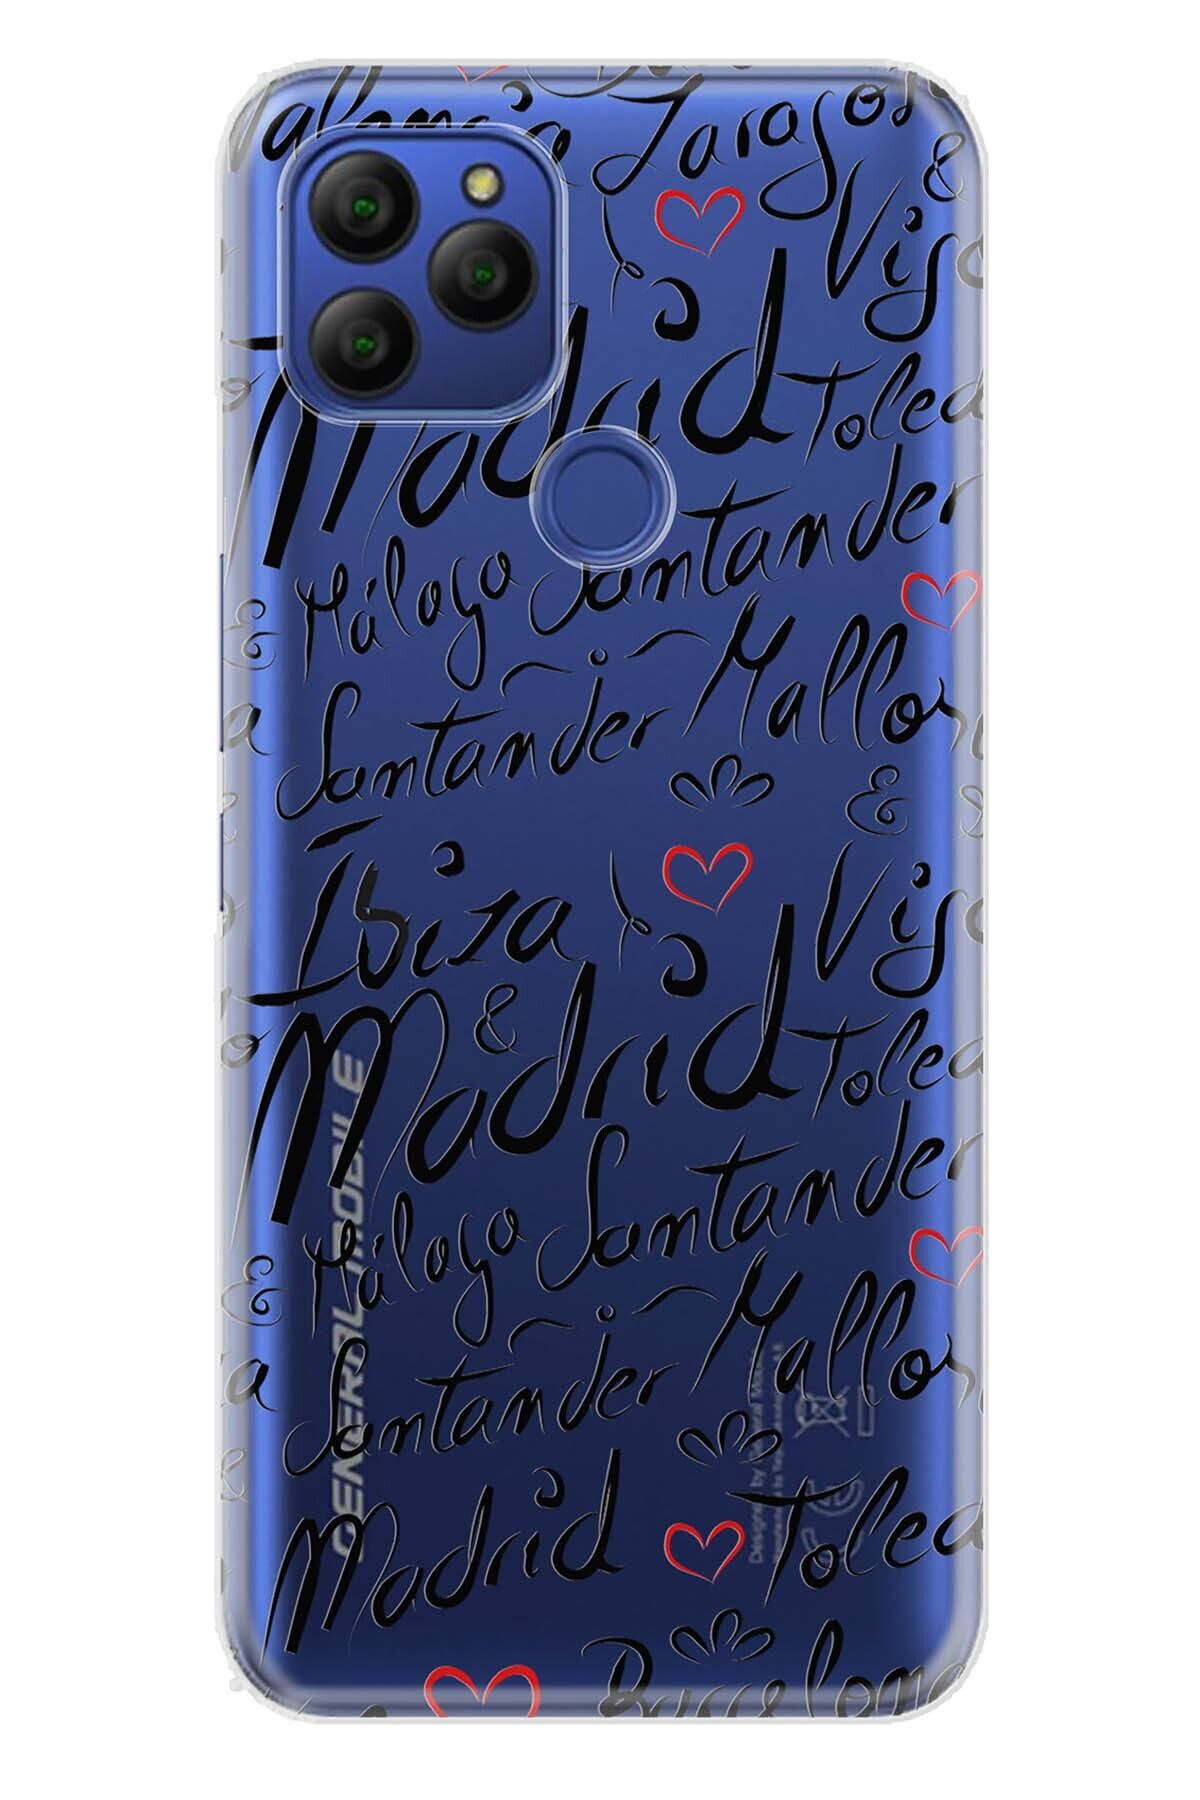 Valencia Zaragoz
&
Vig
Madrid
Toled
Málaga Santander
&
Santander Mallor
a
&
Ibiza
Vig
&
Madrid
Toled
Málaga Santander
&
Santander Mallor
a
Madrid Toled
Barcelona
GENERAL MOBILE
Designed by General Mobile